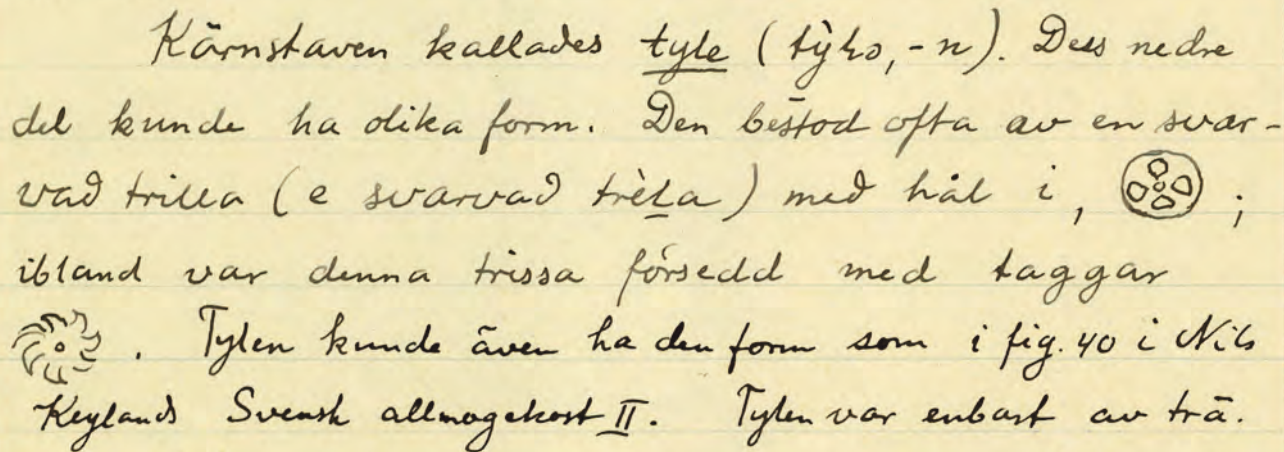 Kärnstaven kallades tyle (                , -n). Dess nedre
del kunde ha olika form. Den bestod ofta av en svar-
vad trilla (e svarvad               ) med hål i, ;
ibland var denna trissa försedd med taggar
. Tylen kunde även ha den form som i fig. 40 i Nils
Keylands Svensk allmogekost II. Tylen var enbart av trä.